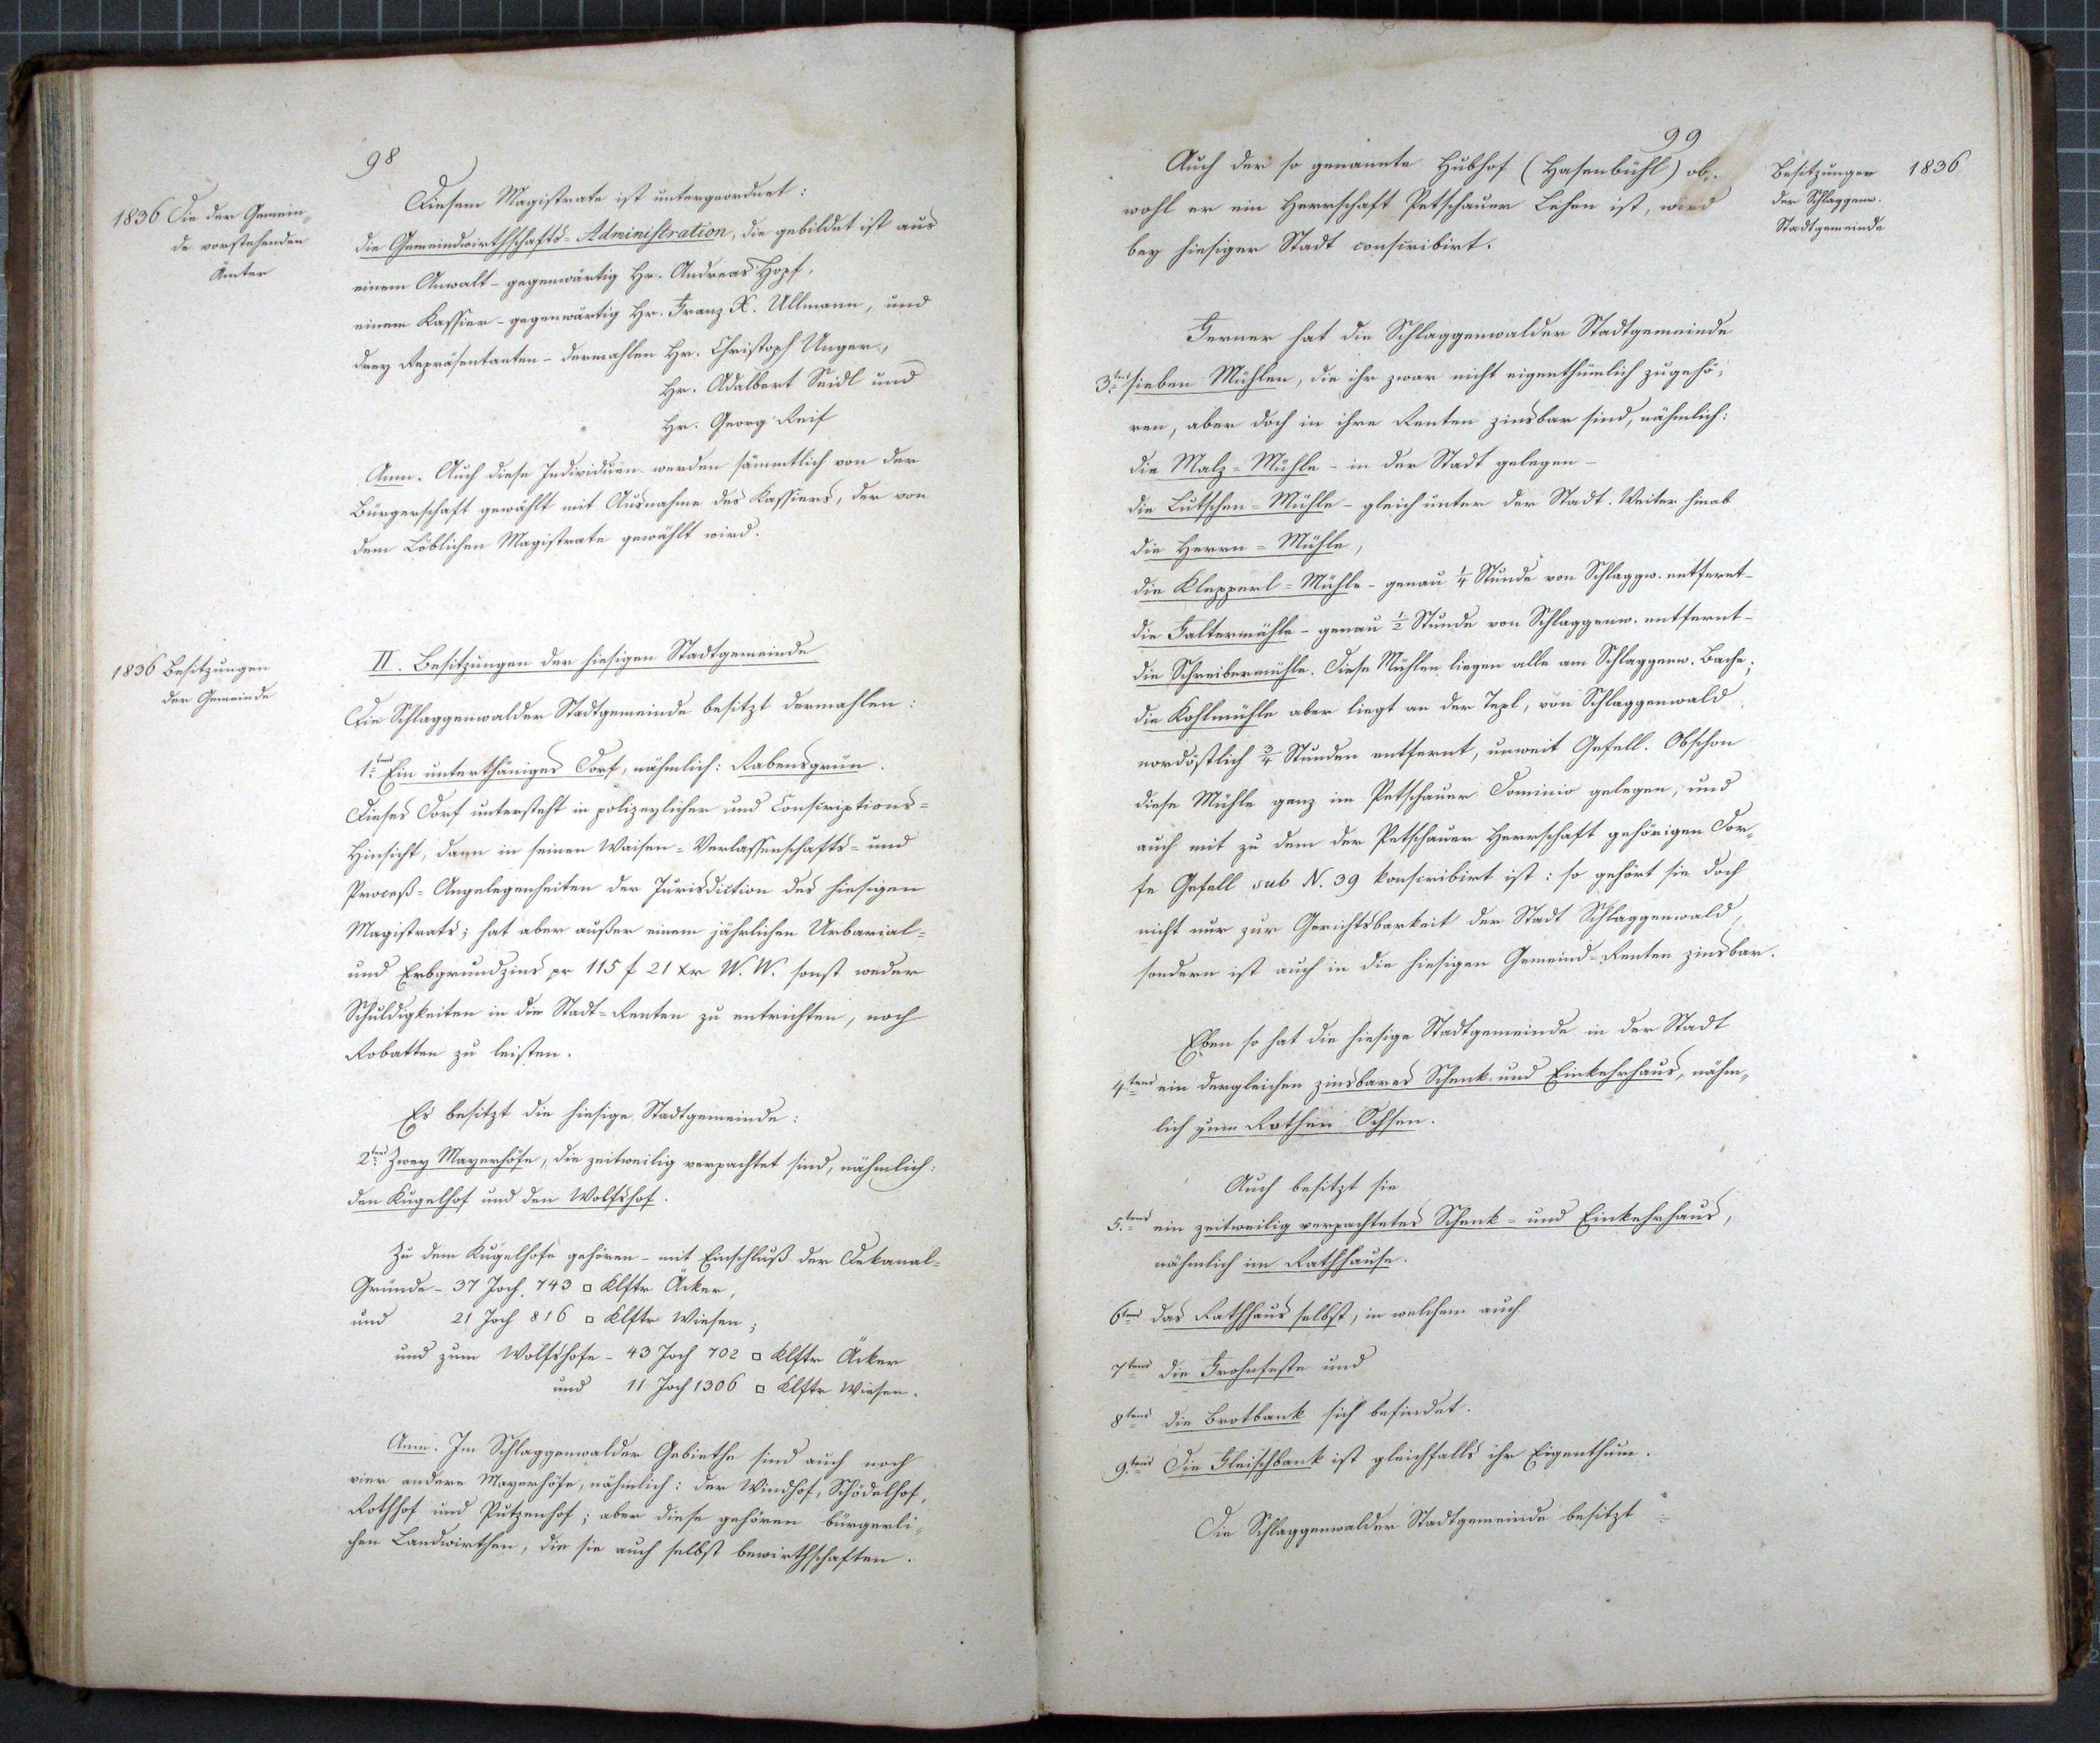 98
1836 Die der Gemein„
de vorstehenden
Ämter
Diesem Magistrate ist untergeordnet:
die Gemeindwirthschafts=Administration, die gebildet ist aus
einem Anwalt - gegenwärtig Hr. Andreas Hopf,
einem Kassier - gegenwärtig Hr. Franz X. Ullmann, und
drey Repräsentanten - dermahlen Hr. Christoph Unger,
Hr. Adalbert Seidl und
Hr. Georg Reif
Anm. Auch diese Individuen werden sämmtlich von der
Bürgerschaft gewählt mit Ausnahme des Kassiers, der von
dem Löblichen Magistrate gewählt wird.
1836 Besitzungen
der Gemeinde
II. Besitzungen der hiesigen Stadtgemeinde
Die Schlaggenwalder Stadtgemeinde besitzt dermahlen:
1.tens Ein unterthäniges Dorf, nähmlich: Rabensgrün.
Dieses Dorf untersteht in polizeylicher und Conscriptions=
Hinsicht, dann in seinen Waisen=Verlassenschafts= und
Proceß=Angelegenheiten der Jurisdiction des hiesigen
Magistrats; hat aber außer einem jährlichen Urbarial=
und Erbgrundzins pr 115 f 21 xr W. W. sonst weder
Schuldigkeiten in die Stadt=Renten zu entrichten, noch
Robatten zu leisten.
Es besitzt die hiesige Stadtgemeinde:
2.tens Zwey Mayerhöfe, die zeitweilig verpachtet sind, nähmlich:
den Kugelhof und den Wolfshof.
Zu dem Kugelhofe gehören - mit Einschluß der Dekanal=
Gründe - 37 Joch 743 □ Klftr Äcker,
und 21 Joch 816 □ Klftr Wiesen;
und zum Wolfshofe - 43 Joch 702 □ Klftr Äcker
und 11 Joch 1306 □ Klftr Wiesen.
Anm. Im Schlaggenwalder Gebiethe sind auch noch
vier andere Mayerhöfe, nähmlich: der Windhof, Schödelhof,
Rothhof und Putzenhof; aber diese gehören bürgerli„
chen Landwirthen, die sie auch selbst bewirthschaften.
99
Besitzungen 1836
der Schlaggenw.
Stadtgemeinde
Auch der so genannte Hubhof (Hasenbühl) ob„
wohl er ein Herrschaft Petschauer Lehen ist, wird
bey hiesiger Stadt conscribirt.
Ferner hat die Schlaggenwalder Stadtgemeinde
3.tens sieben Mühlen, die ihr zwar nicht eigenthümlich zugehö„
ren, aber doch in ihre Renten zinsbar sind, nähmlich:
die Malz=Mühle - in der Stadt gelegen -
die Lutschen=Mühle - gleich unter der Stadt. Weiter hinab
die Herrn=Mühle,
die Klepperl=Mühle - genau 1/4 Stunde von Schlaggw. entfernt -
die Faltermühle - genau 1/2 Stunde von Schlaggenw. entfernt -
die Schreibermühle. Diese Mühlen liegen alle am Schlaggenw. Bache;
die Kohlmühle aber liegt an der Tepl, von Schlaggenwald
nordöstlich 3/4 Stunden entfernt, unweit Gefell. Obschon
diese Mühle ganz im Petschauer Dominio gelegen, und
auch mit zu dem der Petschauer Herrschaft gehörigen Dor„
fe Gefell sub N. 39 konscribirt ist: so gehört sie doch
nicht nur zur Gerichtsbarkeit der Stadt Schlaggenwald,
sondern ist auch in die hiesigen Gemeind=Renten zinsbar.
Eben so hat die hiesige Stadtgemeinde in der Stadt
4.tens ein dergleichen zinsbares Schenk- und Einkehrhaus, nähm„
lich zum Rothen Ochsen.
Auch besitzt sie
5.tens ein zeitweilig verpachtetes Schenk= und Einkehrhaus,
nähmlich im Rathhause.
6tens das Rathhaus selbst, in welchem auch
7tens die Frohnfeste und
8tens die Brotbank sich befindet.
9.tens Die Fleischbank ist gleichfalls ihr Eigenthum.
Die Schlaggenwalder Stadtgemeinde besitzt :